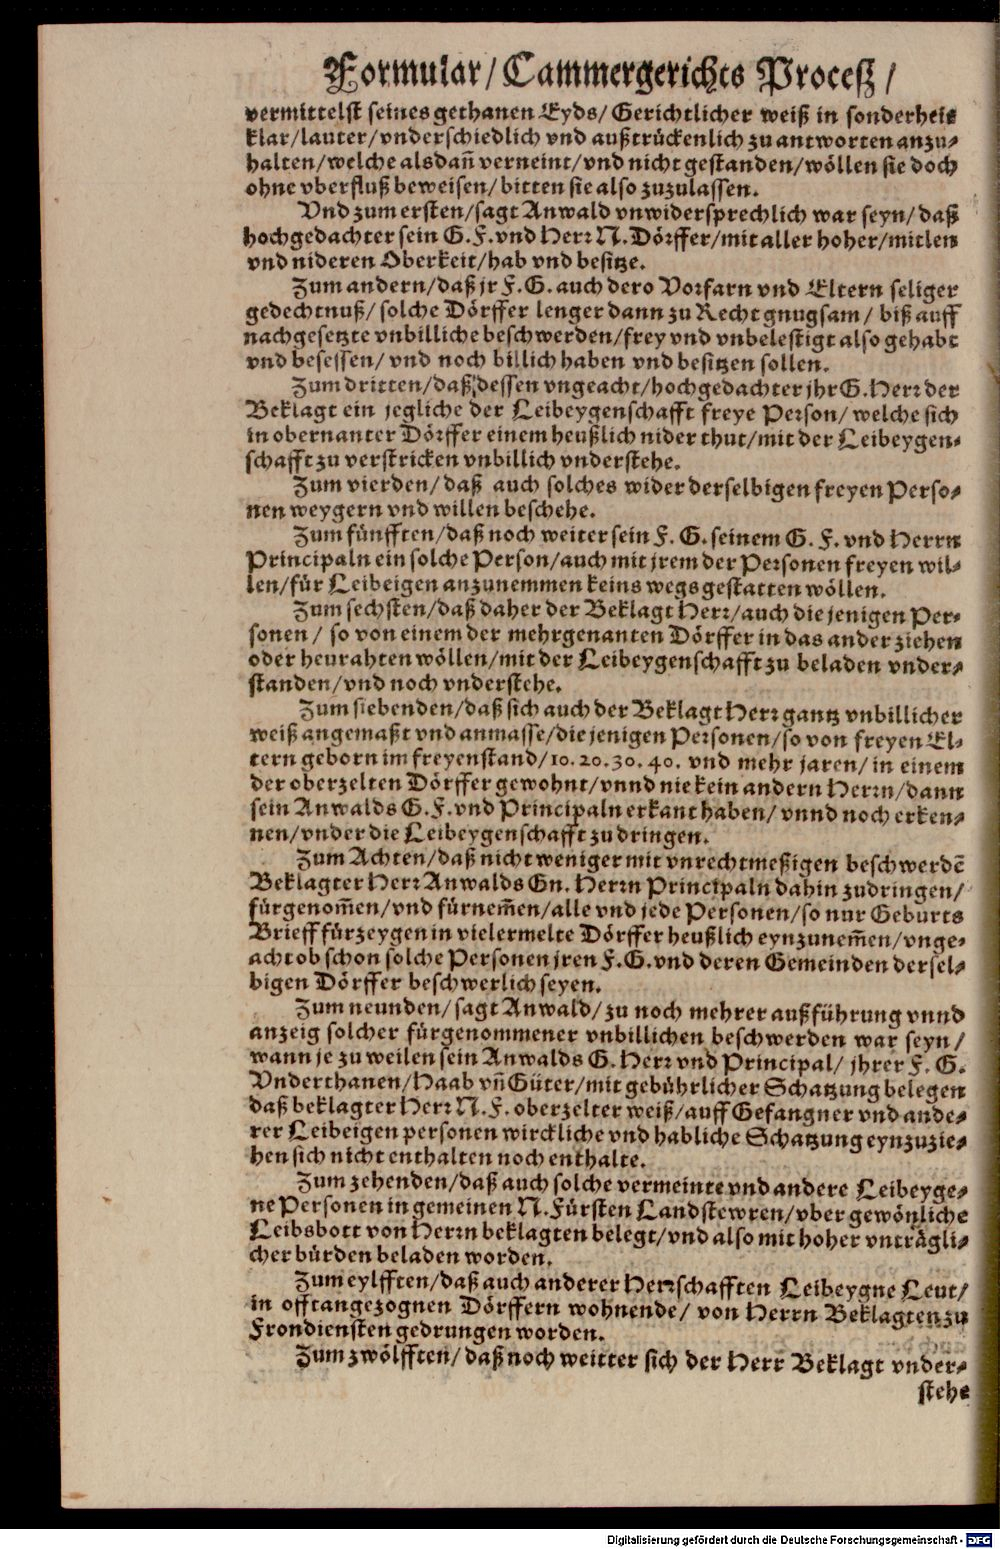 Formular/ Cammergerichts Proceß/
vermittelst seines gethanen Eyds/ Gerichtlicher weiß in sonderheit
klar/lauter/vnderschiedlich vnd außtrückenlich zu antworten anzu-
halten/welche alsdañ verneint/vnd nicht gestanden/wöllen sie doch
ohne vberfluß beweisen/bitten sie also zuzulassen.
Vnd zum ersten/sagt Anwald vnwidersprechlich war seyn/daß
hochgedachter sein G. F. vnd Herr N. Dörffer/mit aller hoher/mitlen
vnd nideren Oberkeit/hab vnd besitze.
Zum andern/daß jr F. G. auch dero Vorfarn vnd Eltern seliger
gedechtnuß/ solche Dörffer lenger dann zu Recht gnugsam/ biß auff
nachgesetzte vnbilliche beschwerden/frey vnd vnbelestigt also gehabt
vnd besessen/ vnd noch billich haben vnd besitzen sollen.
Zum dritten/daß dessen vngeacht/hochgedachter jhr G. Herr der
Beklagt ein jegliche der Leibeygenschafft freye Person/ welche sich
in obernanter Dörffer einem heußlich nider thut/mit der Leibeygen-
schafft zu verstricken vnbillich vnderstehe.
Zum vierden/daß auch solches wider derselbigen freyen Perso-
nen weygern vnd willen beschehe.
Zum fünfften/daß noch weiter sein F. G. seinem G. F. vnd Herrn
Principaln ein solche Person/auch mit jrem der Personen freyen wil-
len/für Leibeigen anzunemmen keins wegs gestatten wöllen.
Zum sechsten/daß daher der Beklagt Herr/auch die jenigen Per-
sonen/ so von einem der mehrgenanten Dörffer in das ander ziehen
oder heurahten wöllen/mit der Leibeygenschafft zu beladen vnder-
standen/vnd noch vnderstehe.
Zum siebenden/daß sich auch der Beklagt Herr gantz vnbillicher
weiß angemaßt vnd anmasse/die jenigen Personen/so von freyen El-
tern geborn im freyenstand/10. 20. 30. 40. vnd mehr jaren/in einem
der oberzelten Dörffer gewohnt/vnnd nie kein andern Herrn/dann
sein Anwalds G. F. vnd Principaln erkant haben/ vnnd noch erken-
nen/vnder die Leibeygenschafft zu dringen.
Zum Achten/daß nicht weniger mit vnrechtmeßigen beschwerdẽ
Beklagter Herr Anwalds Gn. Herrn Principaln dahin zudringen/
fürgenom̃en/vnd fürnem̃en/alle vnd jede Personen/so nur Geburts
Brieff fürzeygen in vielermelte Dörffer heußlich eynzunem̃en/vnge-
acht ob schon solche Personen jren F. G. vnd deren Gemeinden dersel-
bigen Dörffer beschwerlich seyen.
Zum neunden/sagt Anwald/zu noch mehrer außführung vnnd
anzeig solcher fürgenommener vnbillichen beschwerden war seyn/
wann je zu weilen sein Anwalds G. Herr vnd Principal/ jhrer F. G.
Vnderthanen/Haab vñ Güter/mit gebührlicher Schatzung belegen
daß beklagter Herr N. F. oberzelter weiß/auff Gefangner vnd ande-
rer Leibeigen personen wirckliche vnd habliche Schatzung eynzuzie-
hen sich nicht enthalten noch enthalte.
Zum zehenden/daß auch solche vermeinte vnd andere Leibeyge-
ne Personen in gemeinen N. Fürsten Landstewren/vber gewönliche
Leibsbott von Herrn beklagten belegt/vnd also mit hoher vnträgli-
cher bürden beladen worden.
Zum eylfften/daß auch anderer Herrschafften Leibeygne Leut/
in offtangezognen Dörffern wohnende/ von Herrn Beklagten zu
Frondiensten gedrungen worden.
Zum zwölfften/daß noch weitter sich der Herr Beklagt vnder-
stehe
Digitalisierung gefördert durch die Deutsche Forschungsgemeinschaft - DFG